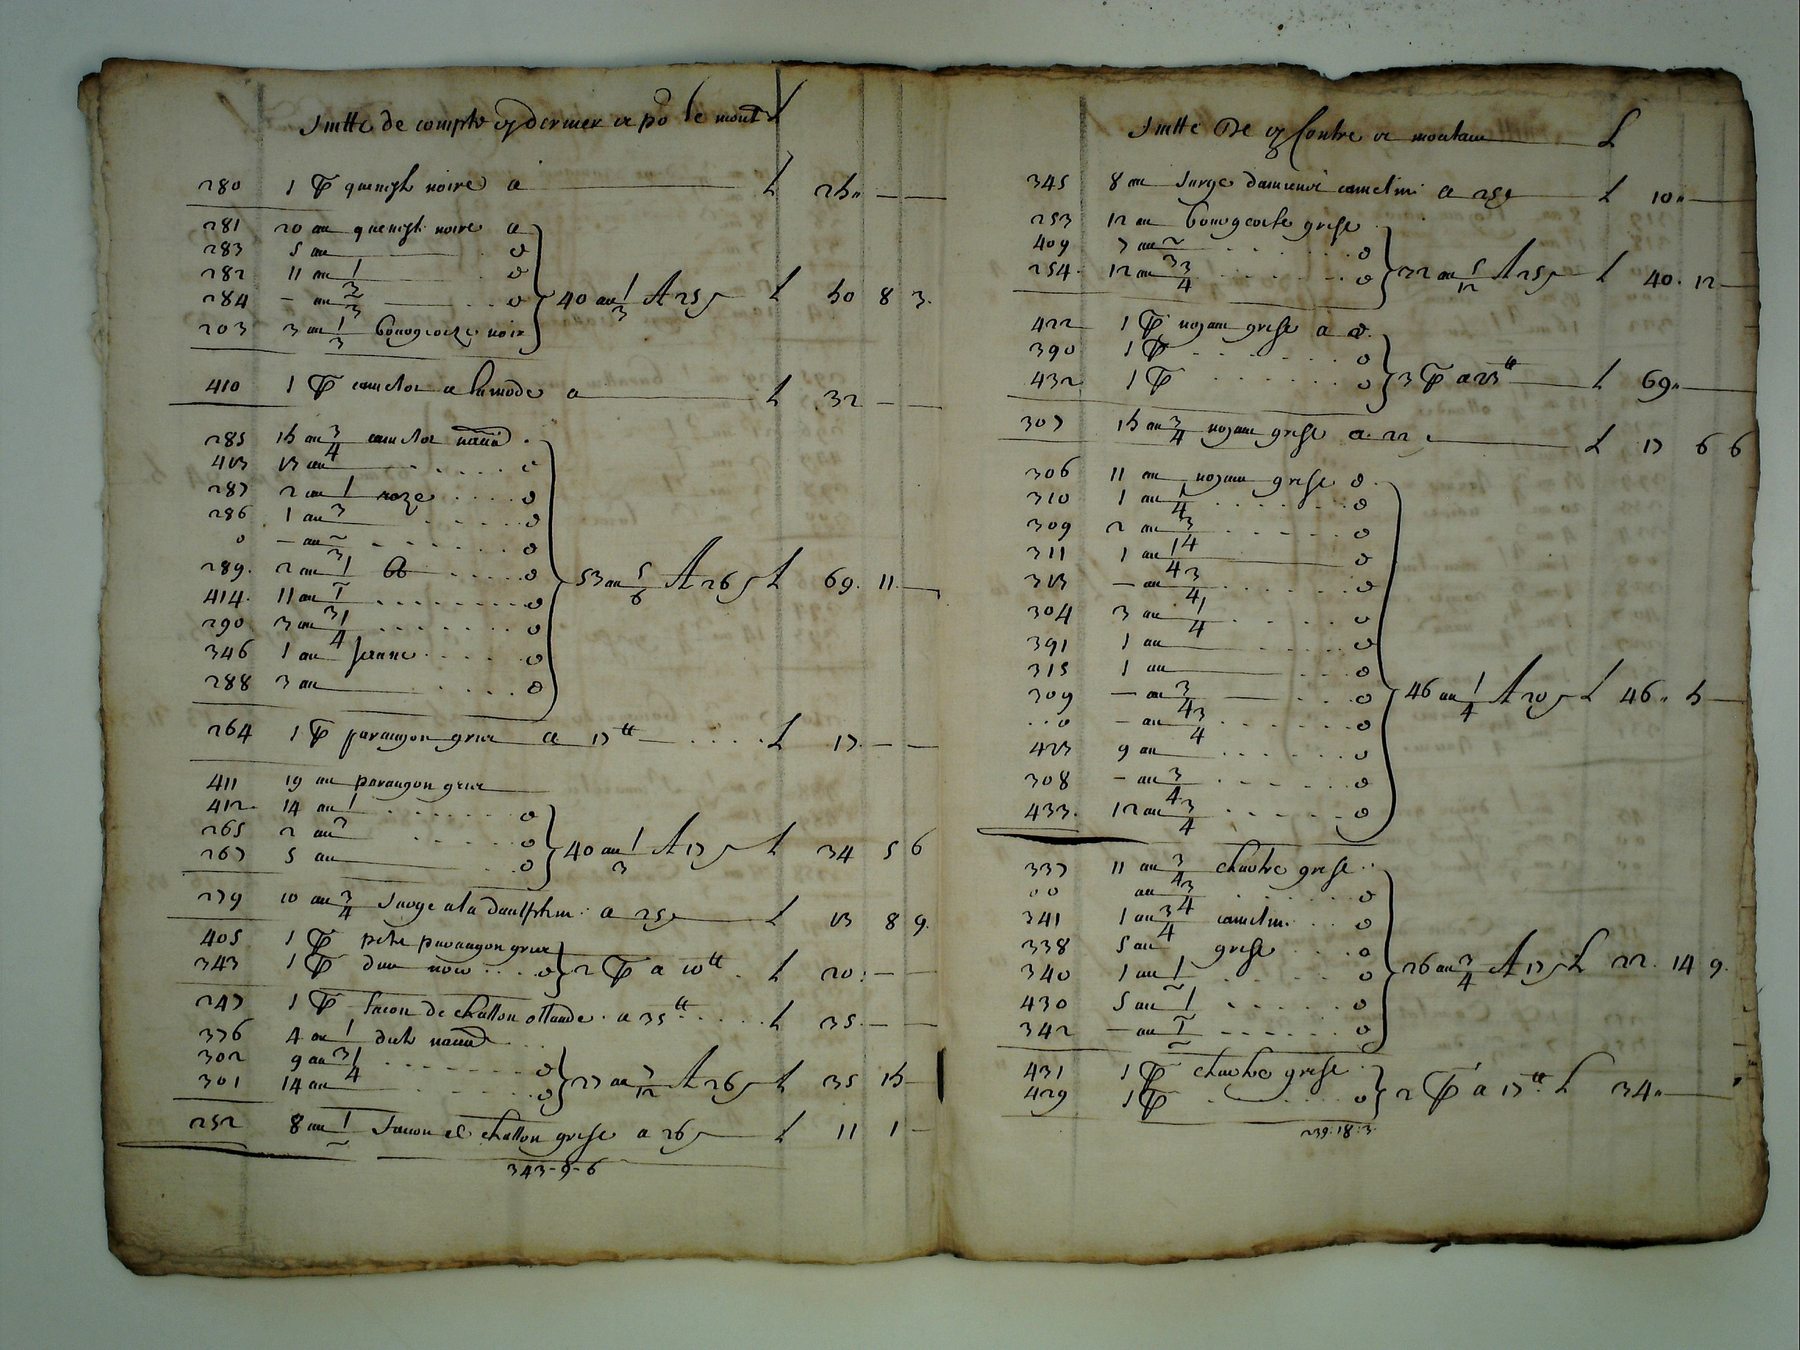 Suitte de compte cy dernier et po le mont L
280 1 ps quenish noire a L 25 — —
281 20 au quenish noire a
283 5 au o
282 11 au 1/3 o
284 – au 2/3 o
203 3 au 1/3 bourgeoize noir
40 au 1/3 A 25 s L 50 8 3
410 1 ps camelot a la mode a L 32 — —
285 15 au 3/4 camelot nacard
413 13 au o
287 2 au 1/2 roze o
286 1 au 2/3 o
0 – au 1/2 o
289 2 au 1/2 o
414 11 au 1/3 o
290 3 au 1/4 o
346 1 au jaune o
288 3 au o
53 au 5/6 A 26 s L 69 11 —
264 1 ps parangon grix a 17 tt L 17 — —
411 19 au parangon grix
412 14 au 1/3 o
265 2 au o
267 5 au o
40 au 1/3 A 17 s L 34 5 6
279 10 au 3/4 Sarge a la daulphin a 25 s L 13 8 9
405 1 ps petit parangon grix
343 1 ps dun noir o
2 ps a 10 tt L 20 — —
247 1 ps facon de challon ollande a 35 tt L 35 — —
376 4 au 1/3 dich nacard
302 9 au 1/4 o
301 14 au o
27 au 7/12 A 26 s L 35 15 —
252 8 au 1/2 facon de challon grise a 26 s L 11 1 —
343-9-6
Suitte De cy Contre et montant L
345 8 au Sarge camelin a 25 s L 10 —
253 12 au bourgeoise grise
409 7 au 2/3 o
254 12 au 3/4 o
32 au 5/12 A 25 s L 40 12 —
422 1 ps noyau grise a o
390 1 ps o
432 1 ps o
3 ps a 23 tt L 69 —
307 15 au 3/4 noyau grise a 22 L 17 6 6
306 11 au noyau grise o
310 1 au 1/4 o
309 2 au 3/4 o
311 1 au 1/4 o
313 – au 3/4 o
304 3 au 1/4 o
391 1 au o
315 1 au o
309 – au 3/4 o
..0 – au 3/4 o
423 9 au o
308 – au 3/4 o
433 12 au 3/4 o
46 au 1/4 A 20 s L 46 5 —
337 11 au 3/4 chartre grise
00 au 3/4 o
341 1 au 3/4 camelin o
338 5 au grise o
340 1 au 1/2 o
430 5 au 1/2 o
342 – au 1/2 o
26 au 3/4 A 17 s L 22 14 9
431 1 ps chartre grise
429 1 ps o
2 ps a 17 tt L 34 —
239.18.3